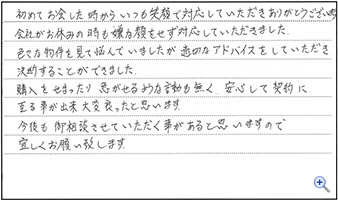 初めてお会した時からいつも笑顔で対応していただきありがとうござい
会社がお休みの時も嫌な顔をせず対応していただきました。
色々な物件を見て悩んでいましたが適切なアドバイスをしていただき
決断することができました。
購入をせまったり急がせるような言動も無く、安心して契約に
至る事が出来大変良ったと思います。
今後も御相談させていただく事があると思いますので
宜しくお願い致します。